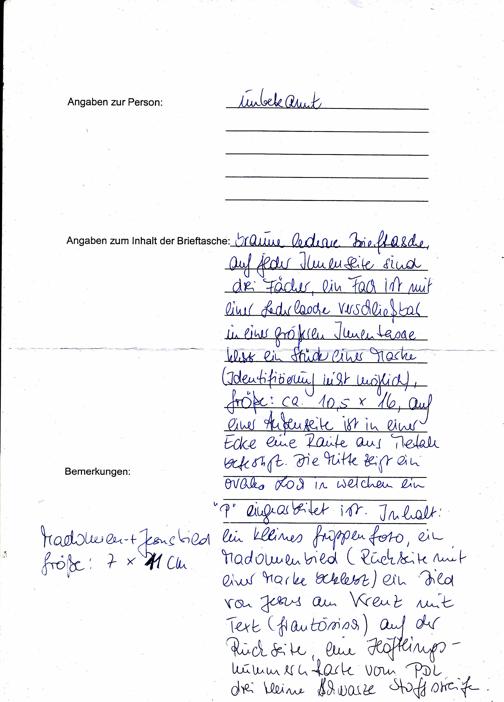 Angaben zur Person: unbekannt
Angaben zum Inhalt der Brieftasche: braune lederne Brieftasche,
auf jeder Innenseite sind
drei Fächer, ein Fach ist mit
einer Lederlasche verschließbar
in einer größeren Innentasche
klebt ein Stück einer Marke
(Identifizierung nicht möglich),
Größe: ca. 10,5 x 16, auf
einer Außenseite ist in einer
Ecke eine Raute aus Metall
befestigt. Die Mitte zeigt ein
Bemerkungen:
ovales Loch in welchen ein
"P" eingearbeitet ist. Inhalt:
Madonnen- + Jesusbild
Größe: 7 x 11 cm
ein kleines Gruppenfoto, ein
Madonnenbild (Rückseite mit
einer Marke beklebt) ein Bild
von Jesus am Kreuz mit
Text (französisch) auf der
Rückseite, eine Häftlings-
nummernkarte vom PDL
drei kleine schwarze Stoffstreifen